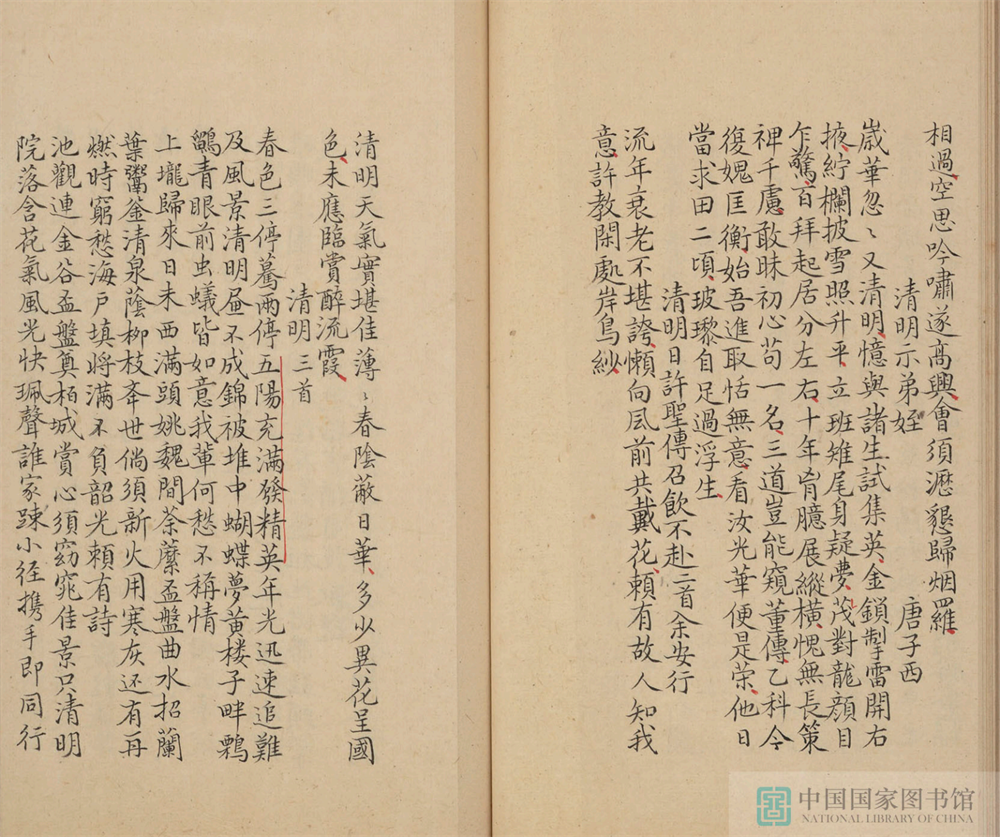 相過空思吟嘯遂髙興會須瀝懇歸烟羅
清明示弟姪　唐子西
嵗華忽〻又清明憶與諸生試集英金鎖掣雷開右
掖紵襴披雪照升平立班雉尾身疑夢茂對龍顔目
乍驚百拜起居分左右十年胷臆展縱橫愧無長策
裨千慮敢昧初心苟一名三道豈能窺董傳乙科今
復媿匡衡始吾進取恬無意看汝光華便是荣他日
當求田二頃玻瓈自足過浮生
清明日許聖傳召飲不赴二首余安行
流年衰老不堪誇懶向風前共戴花頼有故人知我
意許教閑處岸烏紗
清明天氣實堪佳薄〻春陰蔽日華多少異花呈國
色未應臨賞醉流霞
清明三首
春色三停驀兩停五陽充滿發精英年光迅速追難
及風景清明畫不成錦被堆中蝴蝶夢黄楼子畔鸜
鵒青眼前虫蟻皆如意我輩何愁不稱情
上壠歸來日未西滿頭姚魏間荼蘼盃盤曲水招蘭
葉鬻釜清泉蔭柳枝奉世倘須新火用寒灰还有再
燃時窮愁海戸填將滿不負韶光頼有詩
池觀連金谷盃盤奠栢城賞心須窈窕佳景只清明
院落含花氣風光快珮聲誰家踈小径携手即同行
中国国家图书馆
NATIONAL LIBRARY OF CHINA